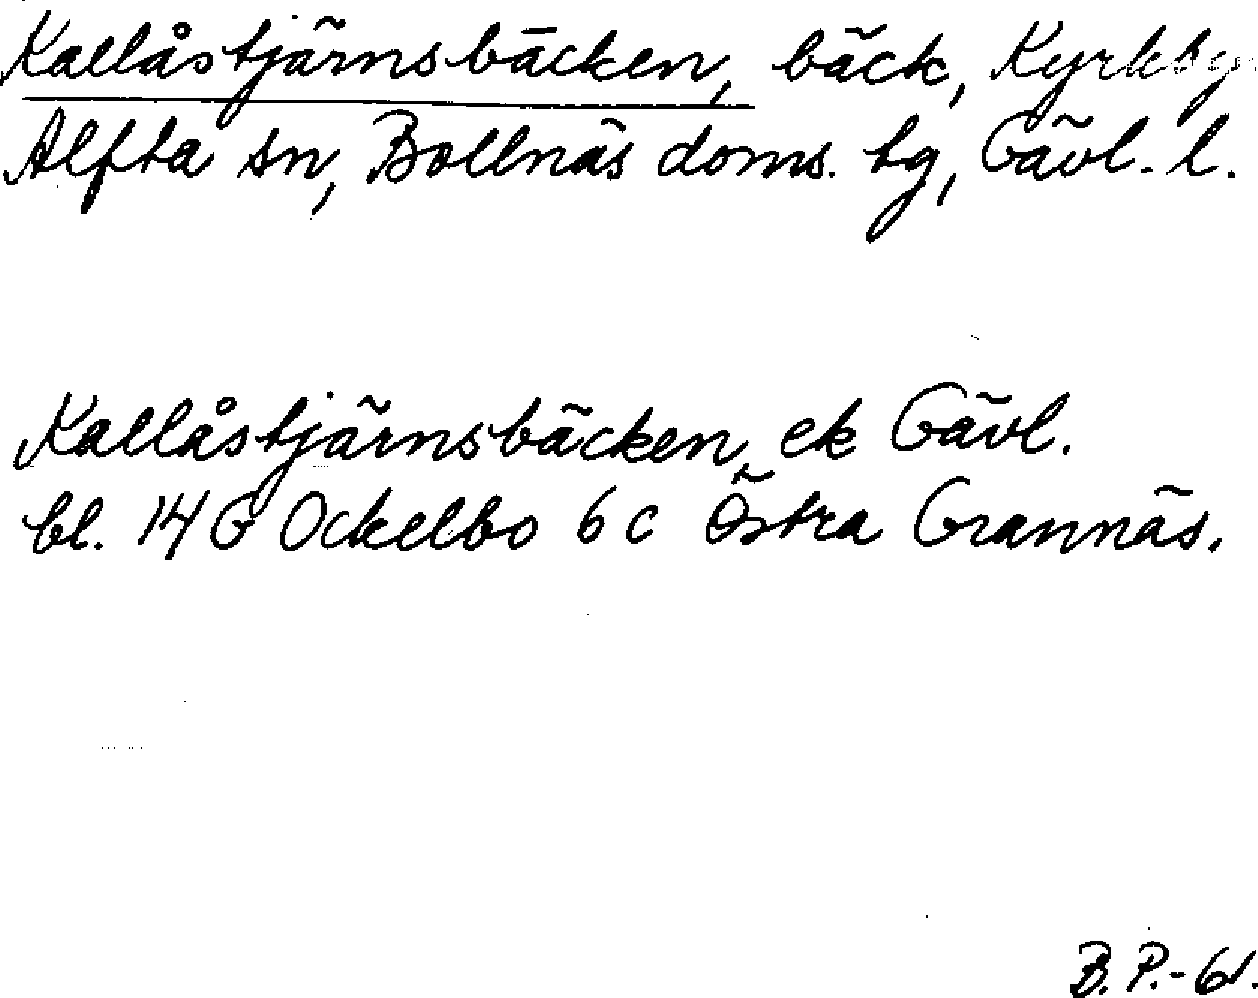 Kallåstjärnsbäcken, bäck, Kyrkbyn
Alfta sn, Bollnäs doms. tg, Gävl. l.
Kallåstjärnsbäcken, ek Gävl.
bl. 14 G Ockelbo 6 c Östra Grannäs.
B. P.-61.